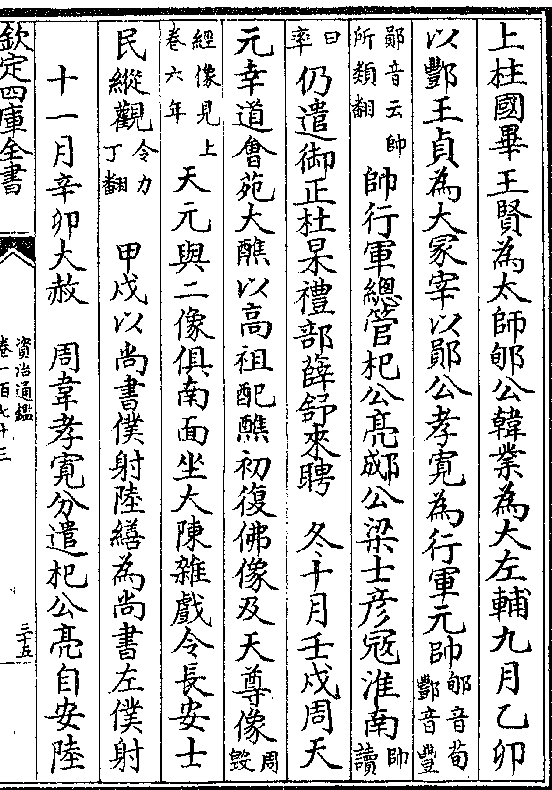 上柱國畢王賢為太師郇公韓業為大左輔九月乙卯
以酆王貞為大冢宰以鄖公孝寛為行軍元帥郇音荀酆音豐
鄖音云帥所類翻帥行軍總管杞公亮郕公梁士彦冦淮南帥讀
曰率仍遣御正杜杲禮部薛舒來聘　冬十月壬戌周天
元幸道會苑大醮以高祖配醮初復佛像及天尊像周毁
經像見上卷六年天元與二像俱南面坐大陳雜戲令長安士
民縱觀令力丁翻　甲戌以尚書僕射陸繕為尚書左僕射
十一月辛卯大赦　周韋孝寛分遣杞公亮自安陸
欽定四庫全書
資治通鑑
卷一百七十三
三十五